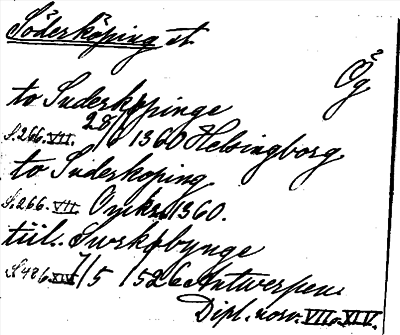 Söderköping st
Ög
to Suderköpinge
S. 266. VII. 28/6 1360 Helsingborg
to Suderkoping
S. 266. VII. 1360.
till. Swrkøbynge
S 486 XIV 7/5 1526 Antwerpen.
Dipl. norv. VII. XIV.